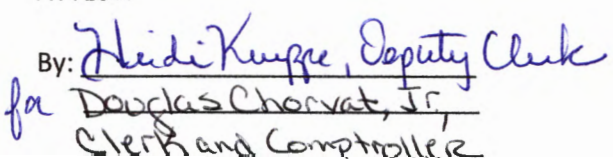 By: Heidi Kuppe, Deputy Clerk
for Douglas Chorvat, Jr.,
Clerk and Comptroller